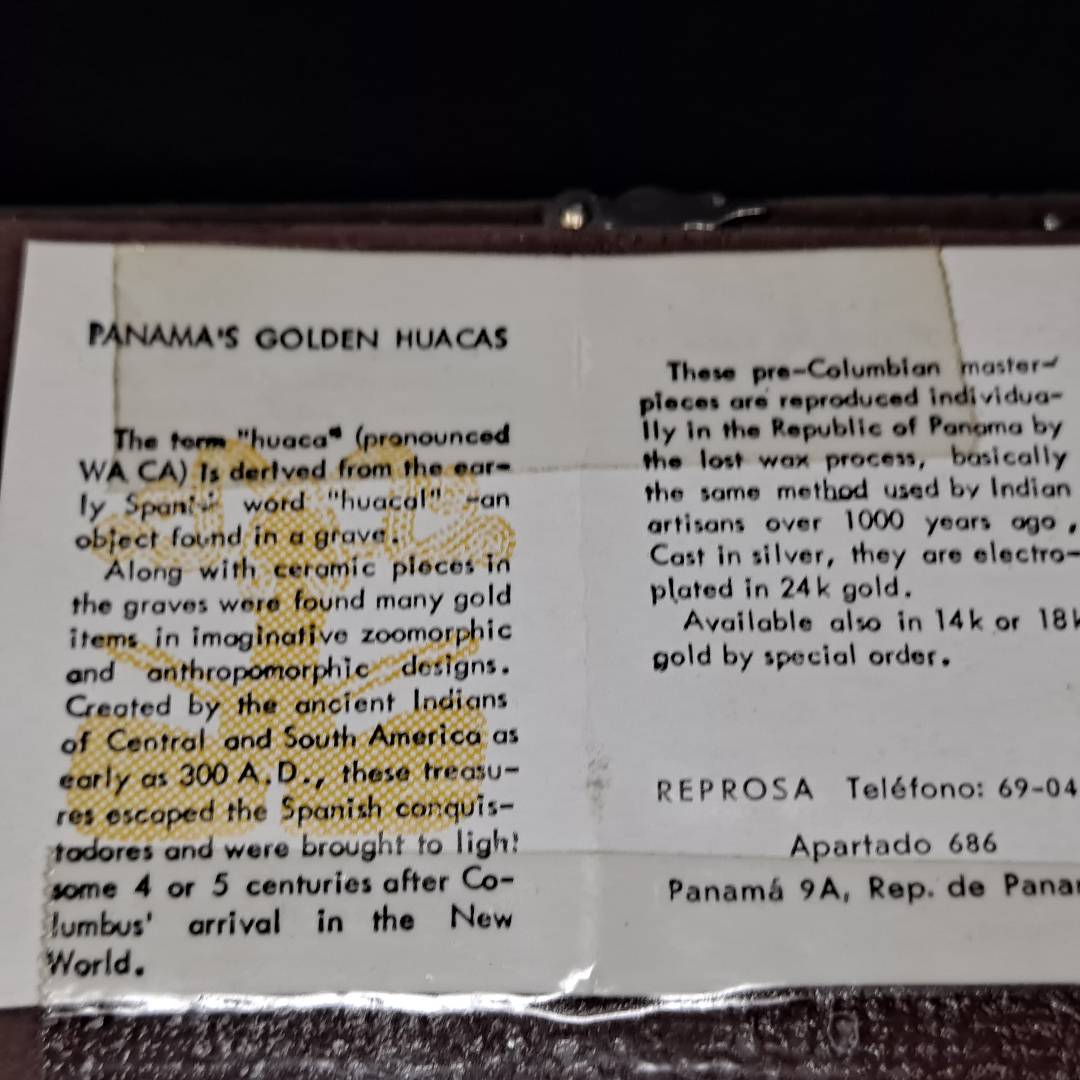 PANAMA'S GOLDEN HUACAS
The term "huaca" (pronounced
WA CA) is derived from the ear-
ly Spanish word "huacal" -an
object found in a grave.
Along with ceramic pieces in
the graves were found many gold
items in imaginative zoomorphic
and anthropomorphic designs.
Created by the ancient Indians
of Central and South America as
early as 300 A.D., these treasu-
res escaped the Spanish conquis-
tadores and were brought to light
some 4 or 5 centuries after Co-
lumbus' arrival in the New
World.
These pre-Columbian master-
pieces are reproduced individua-
lly in the Republic of Panama by
the lost wax process, basically
the same method used by Indian
artisans over 1000 years ago,
Cast in silver, they are electro-
plated in 24k gold.
Available also in 14k or 18k
gold by special order.
REPROSA Teléfono: 69-04
Apartado 686
Panamá 9A, Rep. de